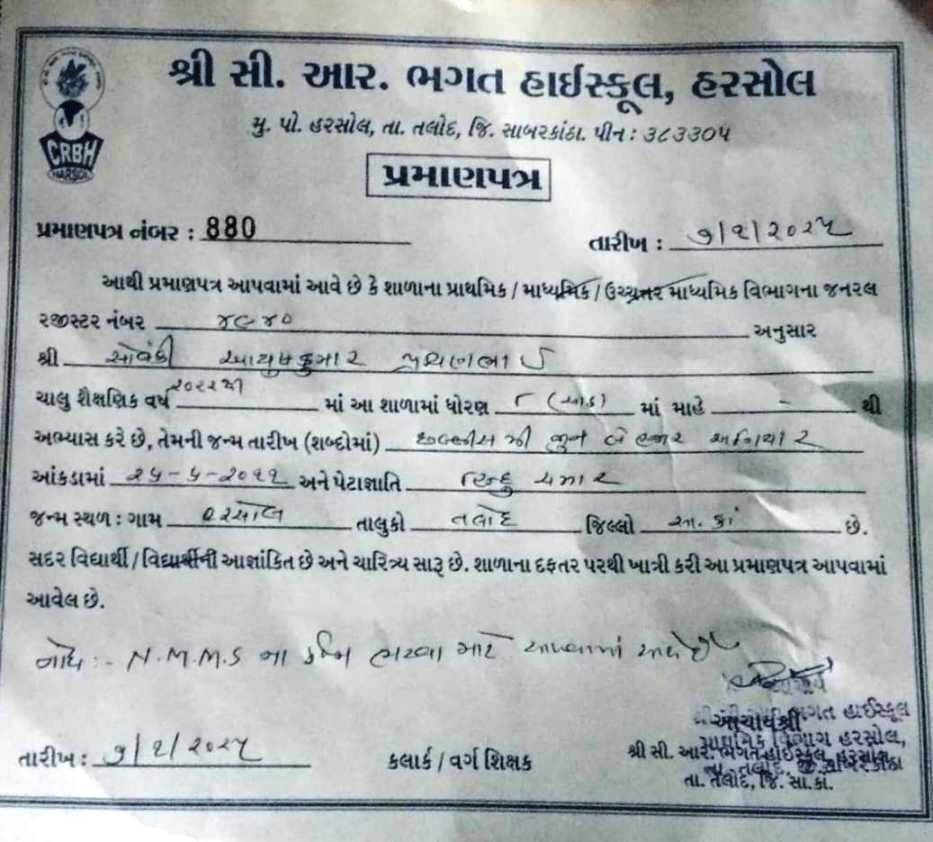 શ્રી સી. આર. ભગત હાઈસ્કૂલ, હરસોલ
CRBH
HARSOL
મુ. પો. હરસોલ, તા. તલોદ, જિ. સાબરકાંઠા. પીન : ૩૮૩૩૦૫
પ્રમાણપત્ર
પ્રમાણપત્ર નંબર : 880
તારીખ : ૭/૨/૨૦૨૫
આથી પ્રમાણપત્ર આપવામાં આવે છે કે શાળાના પ્રાથમિક / માધ્યમિક / ઉચ્ચત્તર માધ્યમિક વિભાગના જનરલ
રજીસ્ટર નંબર ૪૯૪૦ અનુસાર
શ્રી આયુષકુમાર
ચાલુ શૈક્ષણિક વર્ષ માં આ શાળામાં ધોરણ ૮ માં માહે - થી
અભ્યાસ કરે છે, તેમની જન્મ તારીખ (શબ્દોમાં) જુન બે હજાર અગિયાર
આંકડામાં અને પેટાજ્ઞાતિ હિન્દુ ચમાર
જન્મ સ્થળ : ગામ હરસોલ તાલુકો તલોદ જિલ્લો સા. કાં છે.
સદર વિદ્યાર્થી / વિદ્યાર્થીની આજ્ઞાંકિત છે અને ચારિત્ર્ય સારૂ છે. શાળાના દફતર પરથી ખાત્રી કરી આ પ્રમાણપત્ર આપવામાં
આવેલ છે.
નોંધ :- N.M.M.S ના ફોર્મ ભરવા માટે આપવામાં આવે છે
આચાર્યશ્રી
તારીખ : ૭/૨/૨૦૨૫ કલાર્ક / વર્ગ શિક્ષક
શ્રી સી. આર. ભગત હાઈસ્કૂલ, હરસોલ
તા. તલોદ, જિ. સા.કાં.